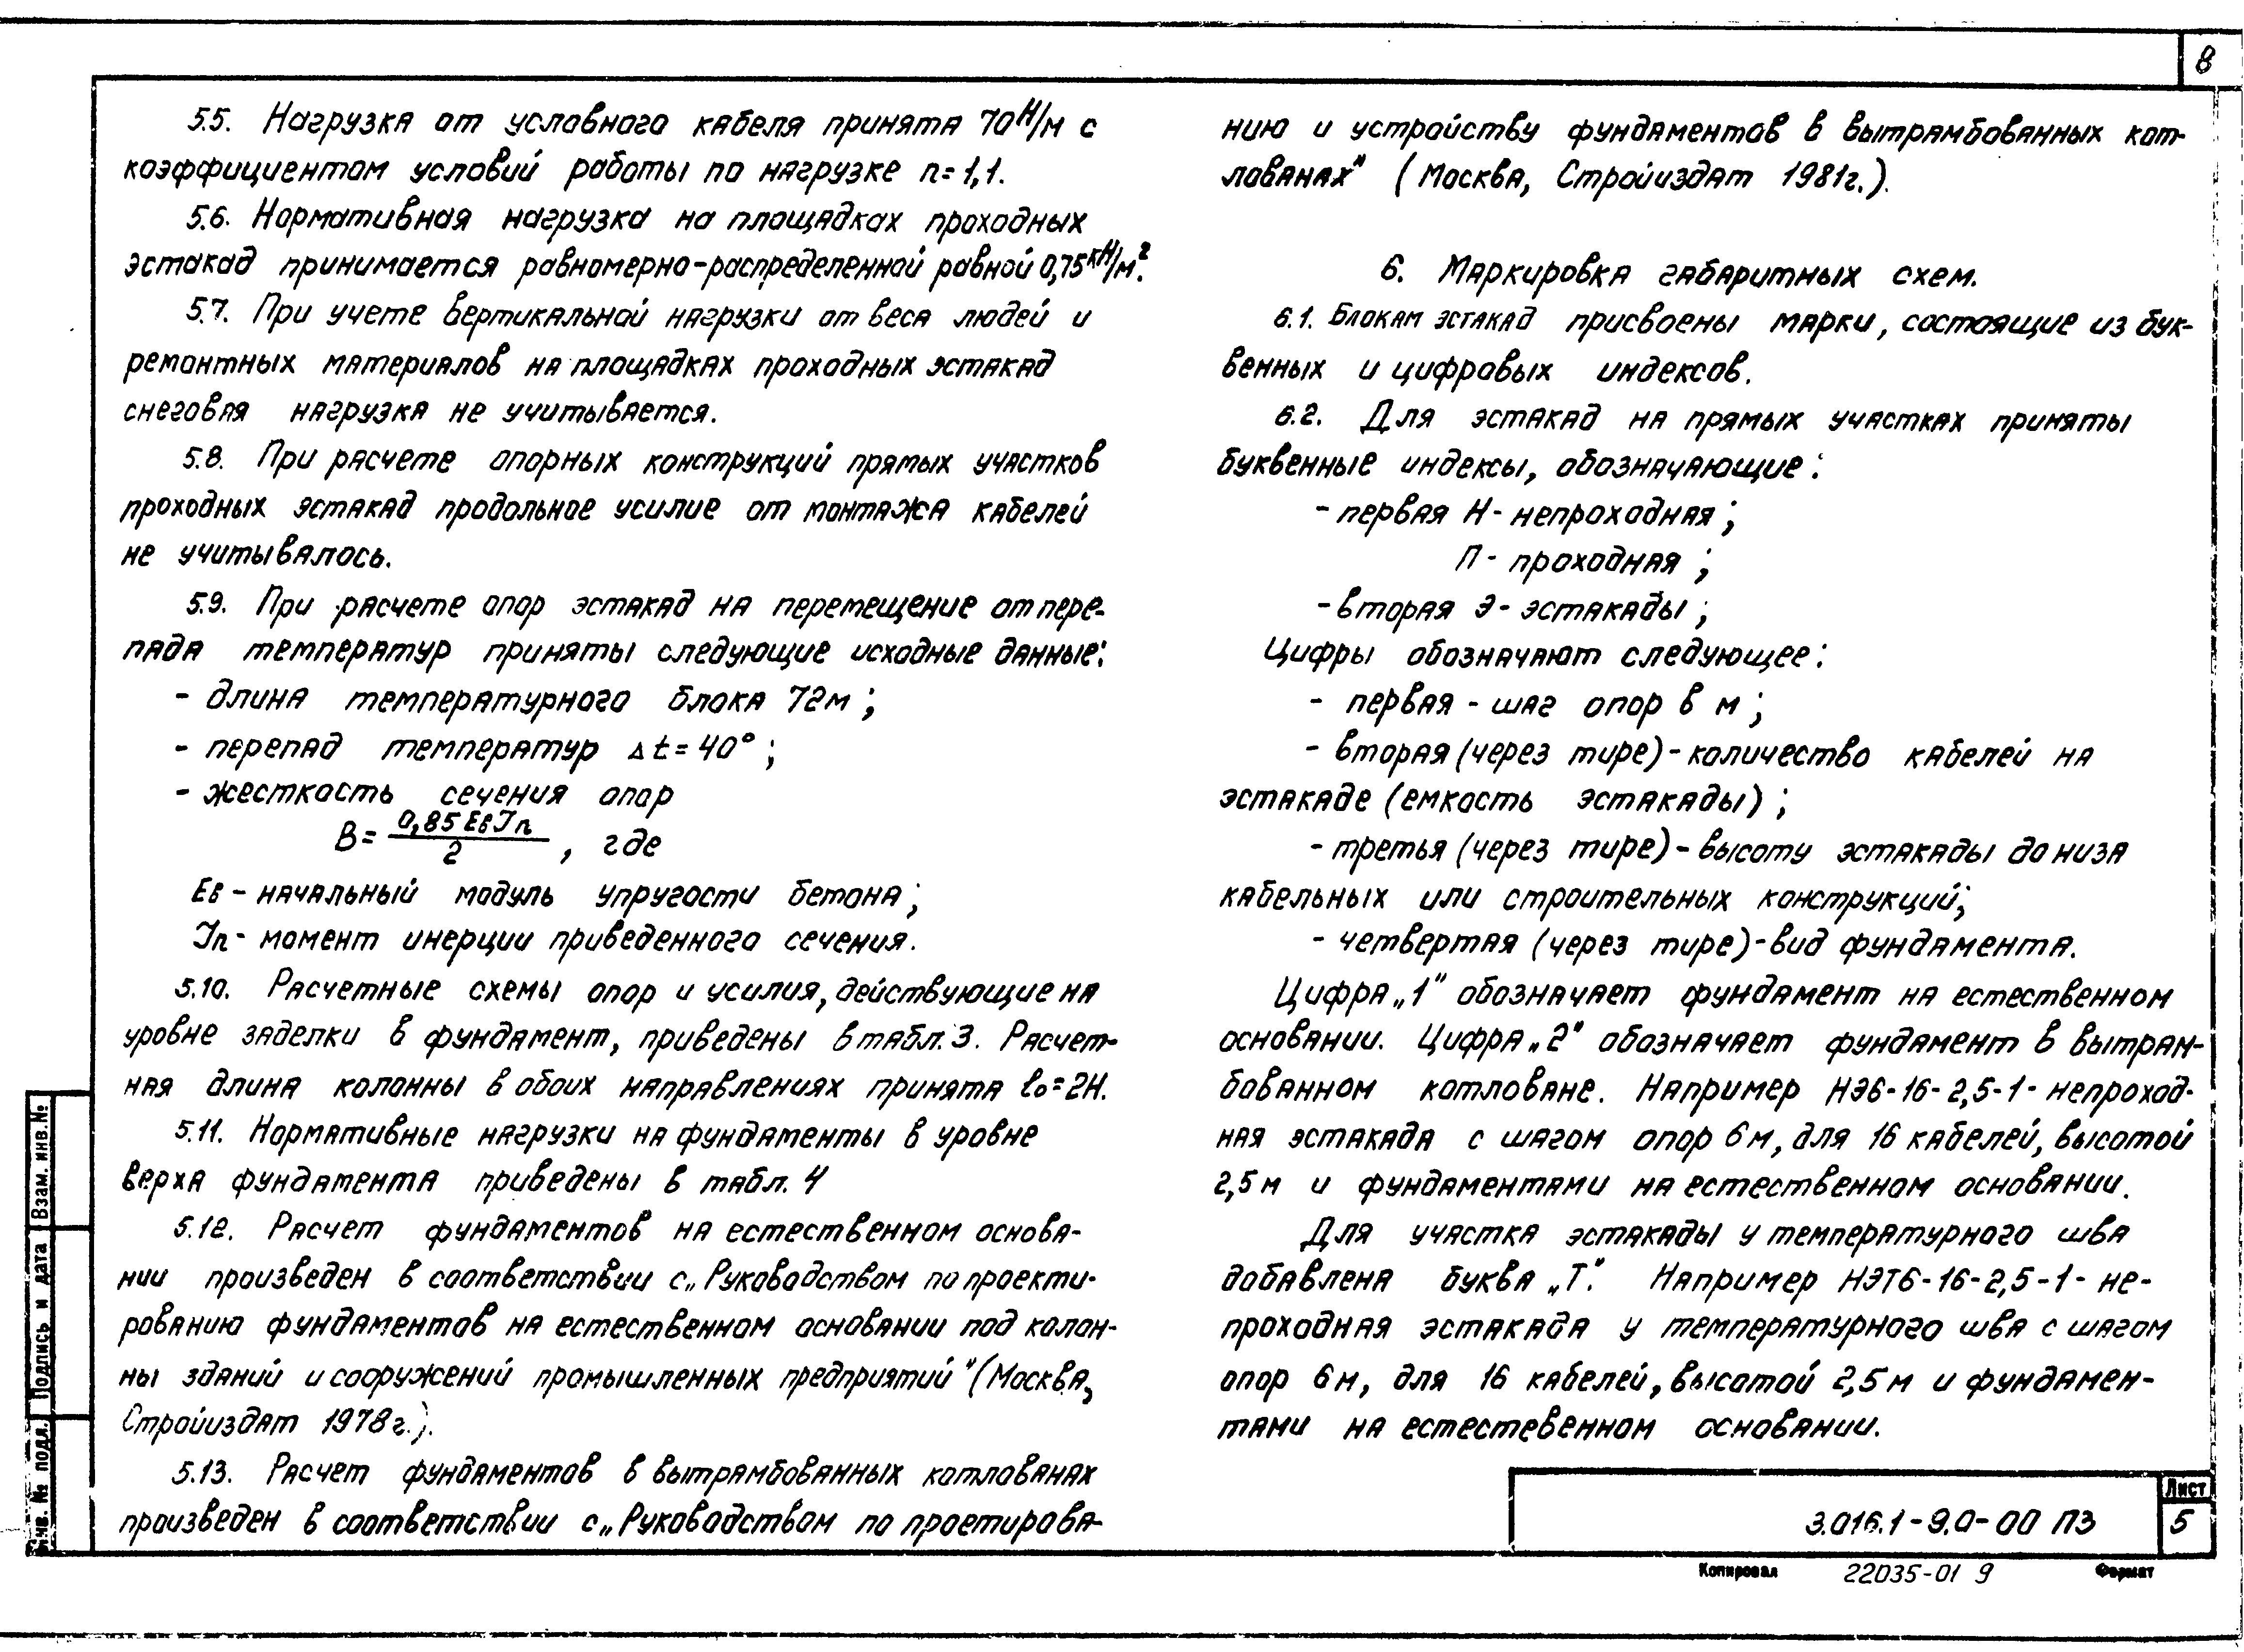 8
5.5. Нагрузка от условного кабеля принята 70Н/м с
коэффициентом условий работы по нагрузке n=1,1.
5.6. Нормативная нагрузка на площадках проходных
эстакад принимается равномерно-распределенной равной 0,75кН/м².
5.7. При учете вертикальной нагрузки от веса людей и
ремонтных материалов на площадках проходных эстакад
снеговая нагрузка не учитывается.
5.8. При расчете опорных конструкций прямых участков
проходных эстакад продольное усилие от монтажа кабелей
не учитывалось.
5.9. При расчете опор эстакад на перемещение от пере-
пада температур приняты следующие исходные данные:
- длина температурного блока 72м;
- перепад температур Δt=40°;
- жесткость сечения опор
B= 0,85EвJп / 2 , где
Eв - начальный модуль упругости бетона;
Jп - момент инерции приведенного сечения.
5.10. Расчетные схемы опор и усилия, действующие на
уровне заделки в фундамент, приведены в табл. 3. Расчет-
ная длина колонны в обоих направлениях принята ℓо=2Н.
5.11. Нормативные нагрузки на фундаменты в уровне
верха фундамента приведены в табл. 4
5.12. Расчет фундаментов на естественном основа-
нии произведен в соответствии с „Руководством по проекти-
рованию фундаментов на естественном основании под колон-
ны зданий и сооружений промышленных предприятий" (Москва,
Стройиздат 1978г.).
5.13. Расчет фундаментов в вытрамбованных котлованах
произведен в соответствии с „Руководством по проетирова-
нию и устройству фундаментов в вытрамбованных кот-
лованах" (Москва, Стройиздат 1981г.).
6. Маркировка габаритных схем.
6.1. Блокам эстакад присвоены марки, состоящие из бук-
венных и цифровых индексов.
6.2. Для эстакад на прямых участках приняты
буквенные индексы, обозначающие:
- первая Н - непроходная;
П - проходная;
- вторая Э - эстакады;
Цифры обозначают следующее:
- первая - шаг опор в м;
- вторая (через тире) - количество кабелей на
эстакаде (емкость эстакады);
- третья (через тире) - высоту эстакады до низа
кабельных или строительных конструкций;
- четвертая (через тире) - вид фундамента.
Цифра „1" обозначает фундамент на естественном
основании. Цифра „2" обозначает фундамент в вытрам-
бованном котловане. Например НЭ6-16-2,5-1 - непроход-
ная эстакада с шагом опор 6м, для 16 кабелей, высотой
2,5м и фундаментами на естественном основании.
Для участка эстакады у температурного шва
добавлена буква „Т". Например НЭТ6-16-2,5-1 - не-
проходная эстакада у температурного шва с шагом
опор 6м, для 16 кабелей, высотой 2,5м и фундамен-
тами на естестевенном основании.
Взам. инв.№
Подпись и дата
Инв. № подл.
3.016.1-9.0-00 ПЗ
Лист
5
Копировал
22035-01 9
Формат